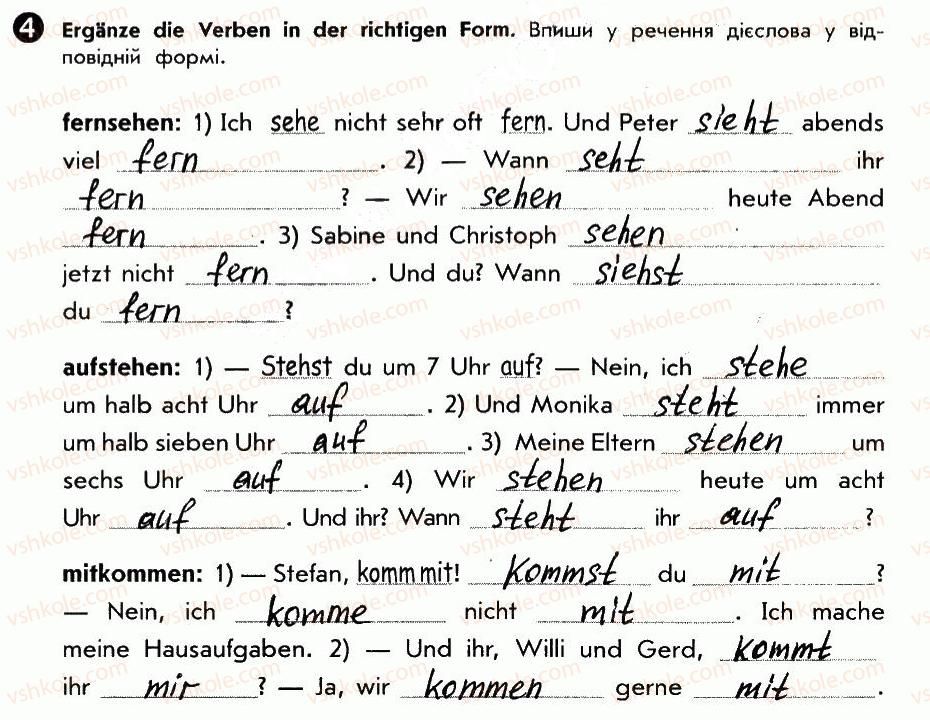 4 Ergänze die Verben in der richtigen Form. Впиши у речення дієслова у від-
повідній формі.
fernsehen: 1) Ich sehe nicht sehr oft fern. Und Peter sieht abends
viel fern. 2) — Wann seht ihr
fern? — Wir sehen heute Abend
fern. 3) Sabine und Christoph sehen
jetzt nicht fern. Und du? Wann siehst
du fern?
aufstehen: 1) — Stehst du um 7 Uhr auf? — Nein, ich stehe
um halb acht Uhr auf. 2) Und Monika steht immer
um halb sieben Uhr auf. 3) Meine Eltern stehen um
sechs Uhr auf. 4) Wir stehen heute um acht
Uhr auf. Und ihr? Wann steht ihr auf?
mitkommen: 1) — Stefan, komm mit! Kommst du mit?
— Nein, ich komme nicht mit. Ich mache
meine Hausaufgaben. 2) — Und ihr, Willi und Gerd, kommt
ihr mir? — Ja, wir kommen gerne mit.